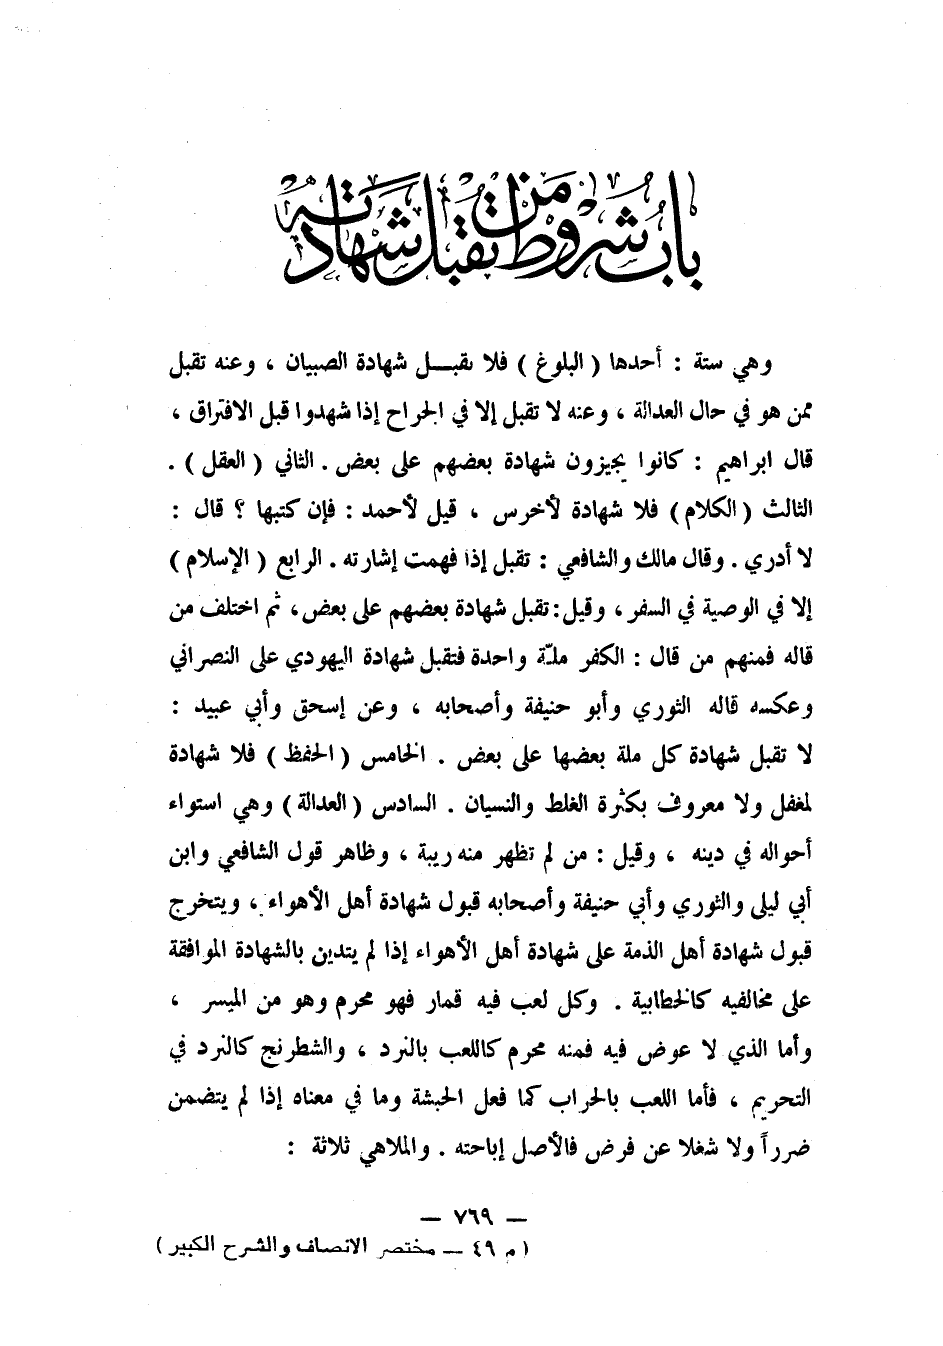 باب شروط من تقبل شهادته
وهي ستة : أحدها ( البلوغ ) فلا تقبـل شهادة الصبيان ، وعنه تقبل
ممن هو في حال العدالة ، وعنه لا تقبل إلا في الجراح إذا شهدوا قبل الافتراق ،
قال ابراهيم : كانوا يجيزون شهادة بعضهم على بعض . الثاني ( العقل ) .
الثالث ( الكلام ) فلا شهادة لأخرس ، قيل لأحمد : فإن كتبها ؟ قال :
لا أدري . وقال مالك والشافعي : تقبل إذا فهمت إشارته . الرابع ( الإسلام )
إلا في الوصية في السفر ، وقيل : تقبل شهادة بعضهم على بعض ، ثم اختلف من
قاله فمنهم من قال : الكفر ملة واحدة فتقبل شهادة اليهودي على النصراني
وعكسه قاله الثوري وأبو حنيفة وأصحابه ، وعن إسحق وأبي عبيد :
لا تقبل شهادة كل ملة بعضها على بعض . الخامس ( الحفظ ) فلا شهادة
لمغفل ولا معروف بكثرة الغلط والنسيان . السادس ( العدالة ) وهي استواء
أحواله في دينه ، وقيل : من لم تظهر منه ريبة ، وظاهر قول الشافعي وابن
أبي ليلى والثوري وأبي حنيفة وأصحابه قبول شهادة أهل الأهواء ، ويتخرج
قبول شهادة أهل الذمة على شهادة أهل الأهواء إذا لم يتدين بالشهادة الموافقة
على مخالفيه كالخطابية . وكل لعب فيه قمار فهو محرم وهو من الميسر ،
وأما الذي لا عوض فيه فمنه محرم كاللعب بالنرد ، والشطرنج كالنرد في
التحريم ، فأما اللعب بالحراب كما فعل الحبشة وما في معناه إذا لم يتضمن
ضرراً ولا شغلا عن فرض فالأصل إباحته . والملاهي ثلاثة :
— ٧٦٩ —
( م ٤٩ — مختصر الانصاف والشرح الكبير )